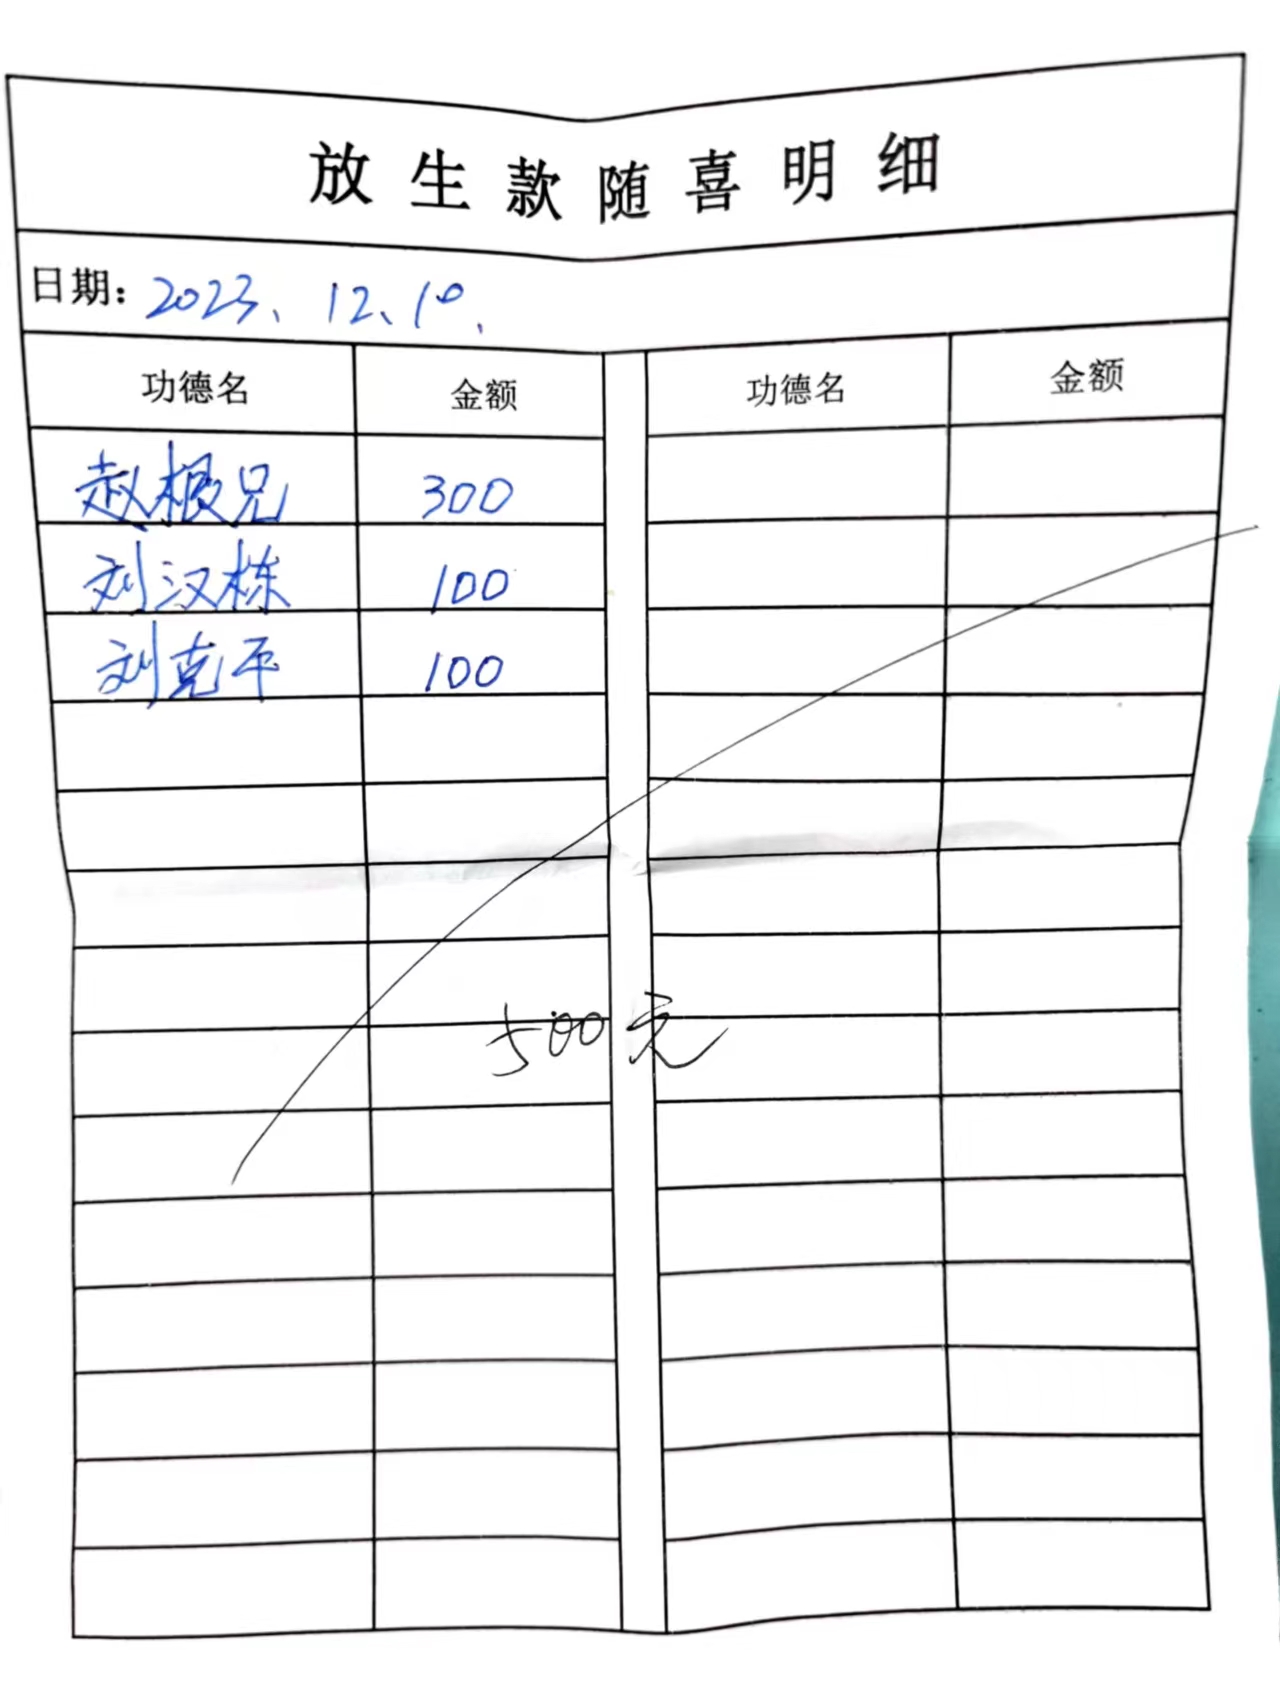 放生款随喜明细
日期：2023、12、10、
功德名 金额 功德名 金额
赵根兄 300
刘汉栋 100
刘克平 100
500元